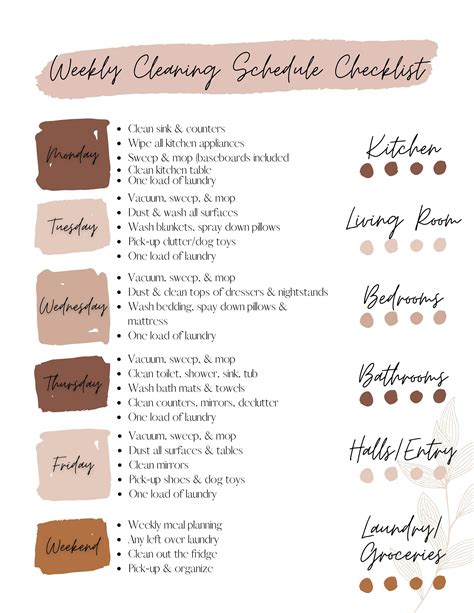 Weekly Cleaning Schedule Checklist
Monday
• Clean sink & counters
• Wipe all kitchen appliances
• Sweep & mop (baseboards included
• Clean kitchen table
• One load of laundry
Kitchen
Tuesday
• Vacuum, sweep, & mop
• Dust & wash all surfaces
• Wash blankets, spray down pillows
• Pick-up clutter/dog toys
• One load of laundry
Living Room
Wednesday
• Vacuum, sweep, & mop
• Dust & clean tops of dressers & nightstands
• Wash bedding, spay down pillows &
mattress
• One load of laundry
Bedrooms
Thursday
• Vacuum, sweep, & mop
• Clean toilet, shower, sink, tub
• Wash bath mats & towels
• Clean counters, mirrors, declutter
• One load of laundry
Bathrooms
Friday
• Vacuum, sweep, & mop
• Dust all surfaces & tables
• Clean mirrors
• Pick-up shoes & dog toys
• One load of laundry
Halls/Entry
Weekend
• Weekly meal planning
• Any left over laundry
• Clean out the fridge
• Pick-up & organize
Laundry/
Groceries